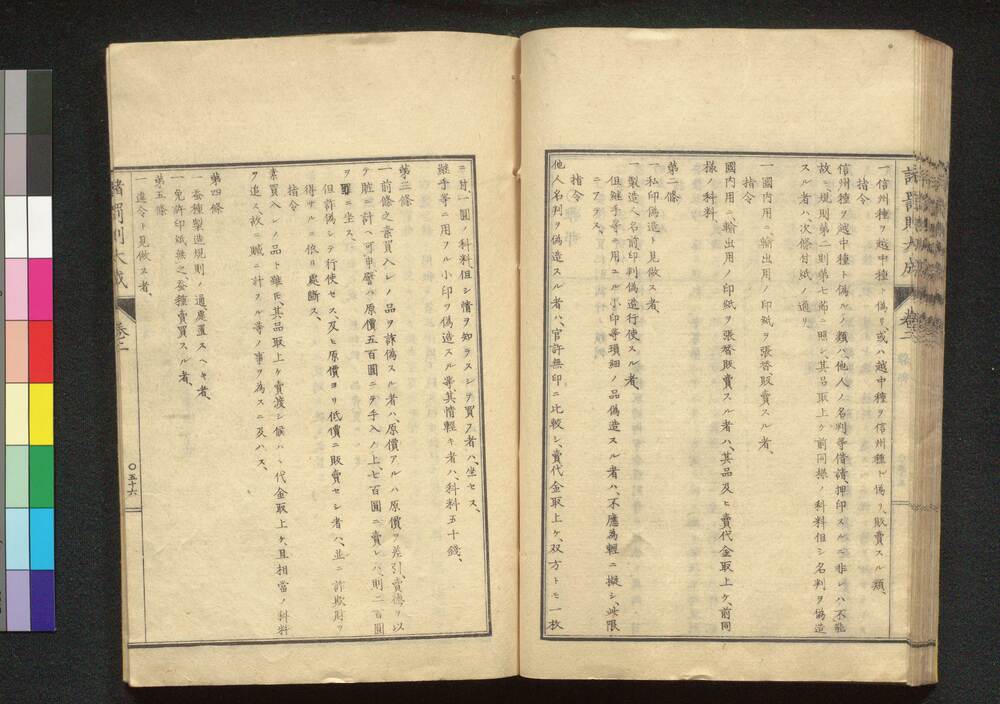 一信州種ヲ越中種ト偽リ或ハ越中種ヲ信州種ト偽リ、販賣スル類、
指令
信州種ヲ越中種ト偽ルノ類ハ、他人ノ名判等偕清、押印スルニ非レハ不能
故ニ規則第二則第七節ニ照シ、其品取上ケ前同樣ノ科料但シ名判ヲ偽造
スル者ハ、次條付紙ノ通リ
一國内用ニ、輸出用ノ印紙ヲ張替販賣スル者、
指令
國内用ニ、輸出用ノ印紙ヲ張替販賣スル者ハ、其品及ヒ賣代金取上ケ、前同
樣ノ科料
第二條
一私印偽造ト見做ス者、
一製造人名前印判偽造行使スル者、
但シ繼手等ニ用ユル小印等瑣細ノ品偽造スル者ハ、不應為輕ニ擬シ、此限
ニアラス、
指令
他人名判ヲ偽造スル者ハ、官許無印ニ比較シ、賣代金取上ケ、双方トモ一枚
ニ付、一圓ノ科料但シ情ヲ知ラスシテ買フ者ハ、坐セス、
繼手等ニ用フル小印ヲ偽造スル等、其情輕キ者ハ、科料五十錢、
第三條
一前條之素買入レノ品ヲ詐偽スル者ハ、原價アルハ原價ヲ差引賣德ヲ以
テ贓ニ計ヘ可申譬ハ原價五百圓ニテ手入ノ上、七百圓ニ賣レハ、則二百圓
ヲ贓ニ坐ス、
但詐偽シテ行使セス、及ヒ原價ヨリ低價ニ販賣セシ者ハ、並ニ詐欺財ヲ
得サルニ依リ處斷ス、
指令
素買入レノ品ト雖モ、其品取上ケ賣渡シ候ハヽ代金取上ケ、且相當ノ科料
ヲ追ス、故ニ贓ニ計フル等ノ事ヲ為スニ及ハス、
第四條
一蚕種製造規則ノ過慮置スヘキ者、
一免許印紙無之蚕種賣買スル者、
第五條
一違令ト見做ス者、
諸罰則大成
卷二
〇五十六